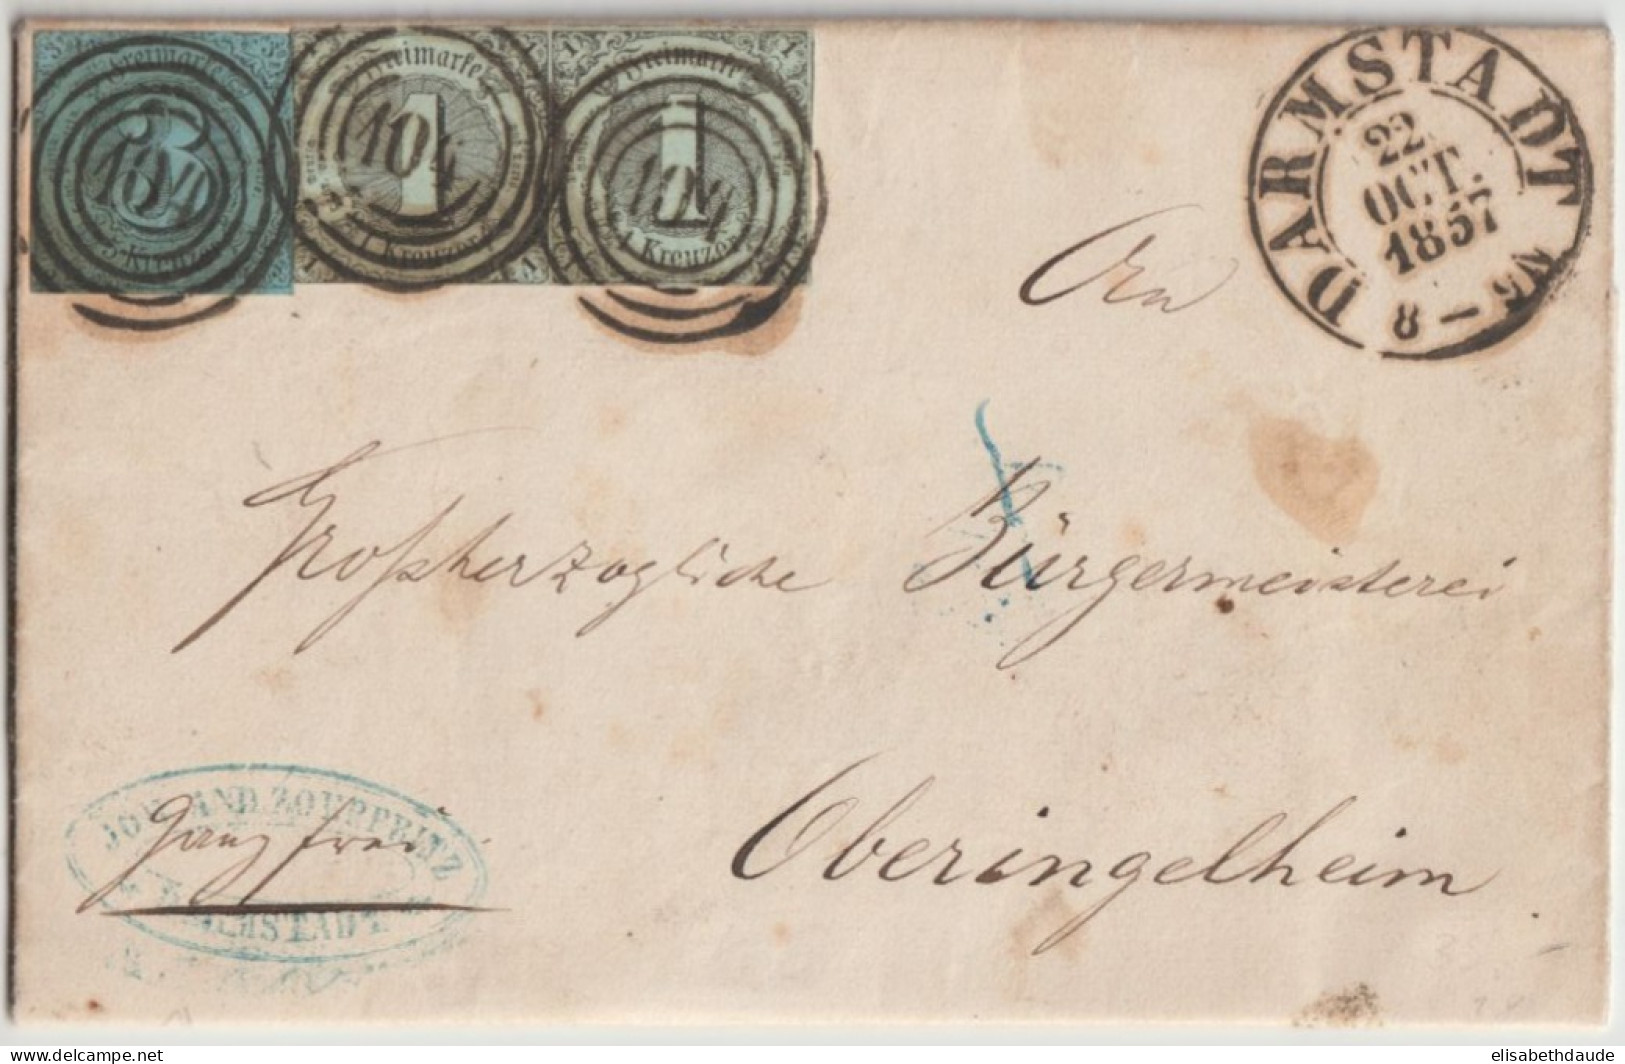 3 Freimarke 3
3
104
3 Kreuzer
1 Freimarke 1
1
104
1 Kreuzer
1 1
1 Freimarke 1
1
104
1 Kreuzer
DARMSTADT
22
OCT.
1857
8 – 9 N
An
Großherzogliche Bürgermeisterei
Oberingelheim
ganz frei
DARMSTADT
delcampe.net
elisabethdaude